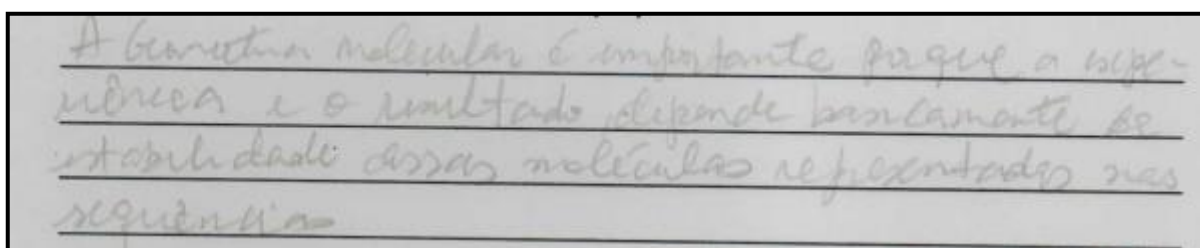 A Geometria molecular é importante porque a expe-
riência e o resultado depende basicamente da
estabilidade dessas moléculas representadas nas
sequências